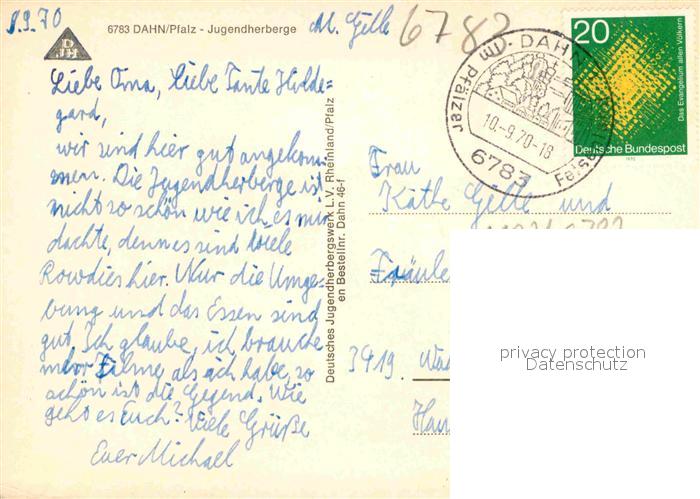 8.9.70
6783 DAHN/Pfalz - Jugendherberge
M. Gelle
6782
DJH
Liebe Oma, liebe Tante Hilde=
gard,
wir sind hier gut angekom-
men. Die Jugendherberge ist
nicht so schön wie ich es mir
dachte, denn es sind viele
Rowdies hier. Nur die Umge-
bung und das Essen sind
gut. Ich glaube, ich brauche
mehr Filme, als ich habe, so
schön ist die Gegend. Wie
geht es Euch? Viele Grüße
Euer Michael
Deutsches Jugendherbergswerk L.V. Rheinland/Pfalz
en Bestellnr. Dahn 46-f
DAHN
IM Pfälzer Felse
10.-9.70-18
6783
20
Das Evangelium allen Völkern
Deutsche Bundespost
1970
Frau
Käthe Gelle und
Fräule
3419
Han
privacy protection
Datenschutz